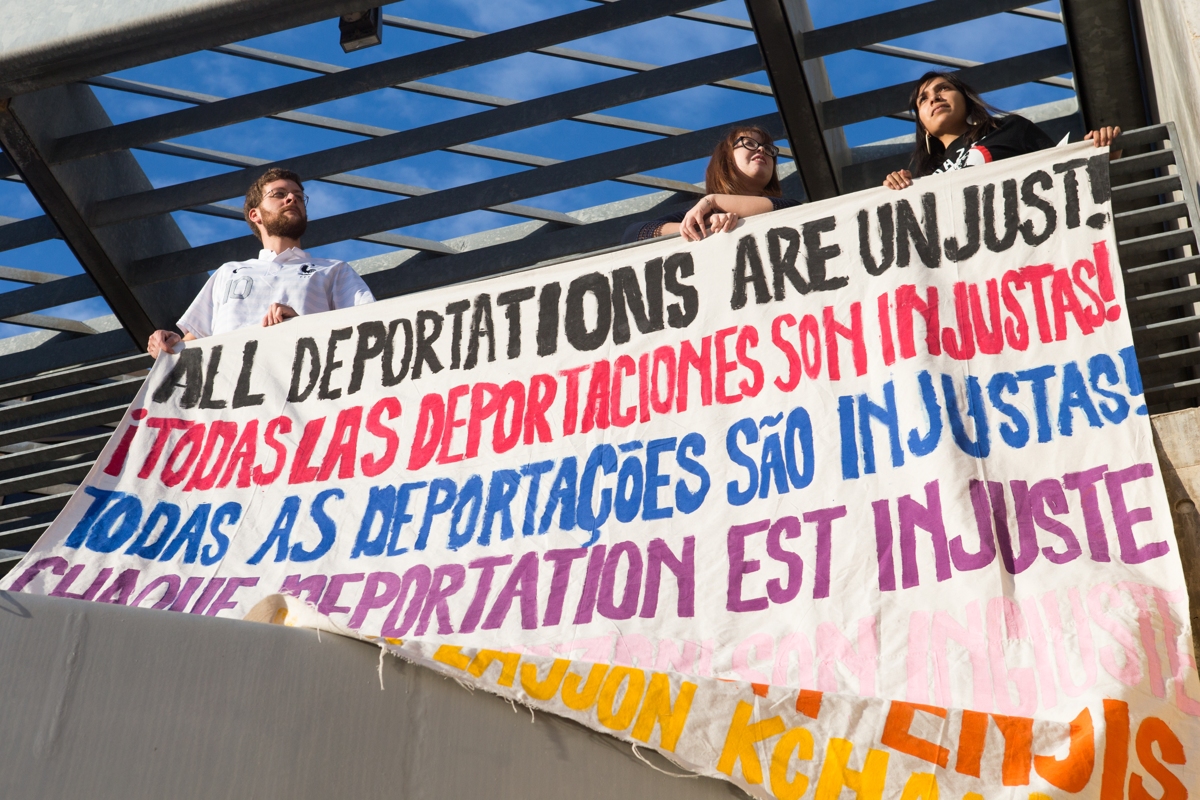 ALL DEPORTATIONS ARE UNJUST!
¡TODAS LAS DEPORTACIONES SON INJUSTAS!
TODAS AS DEPORTAÇÕES SÃO INJUSTAS!
CHAQUE DEPORTATION EST INJUSTE
SON INGIUSTE
10